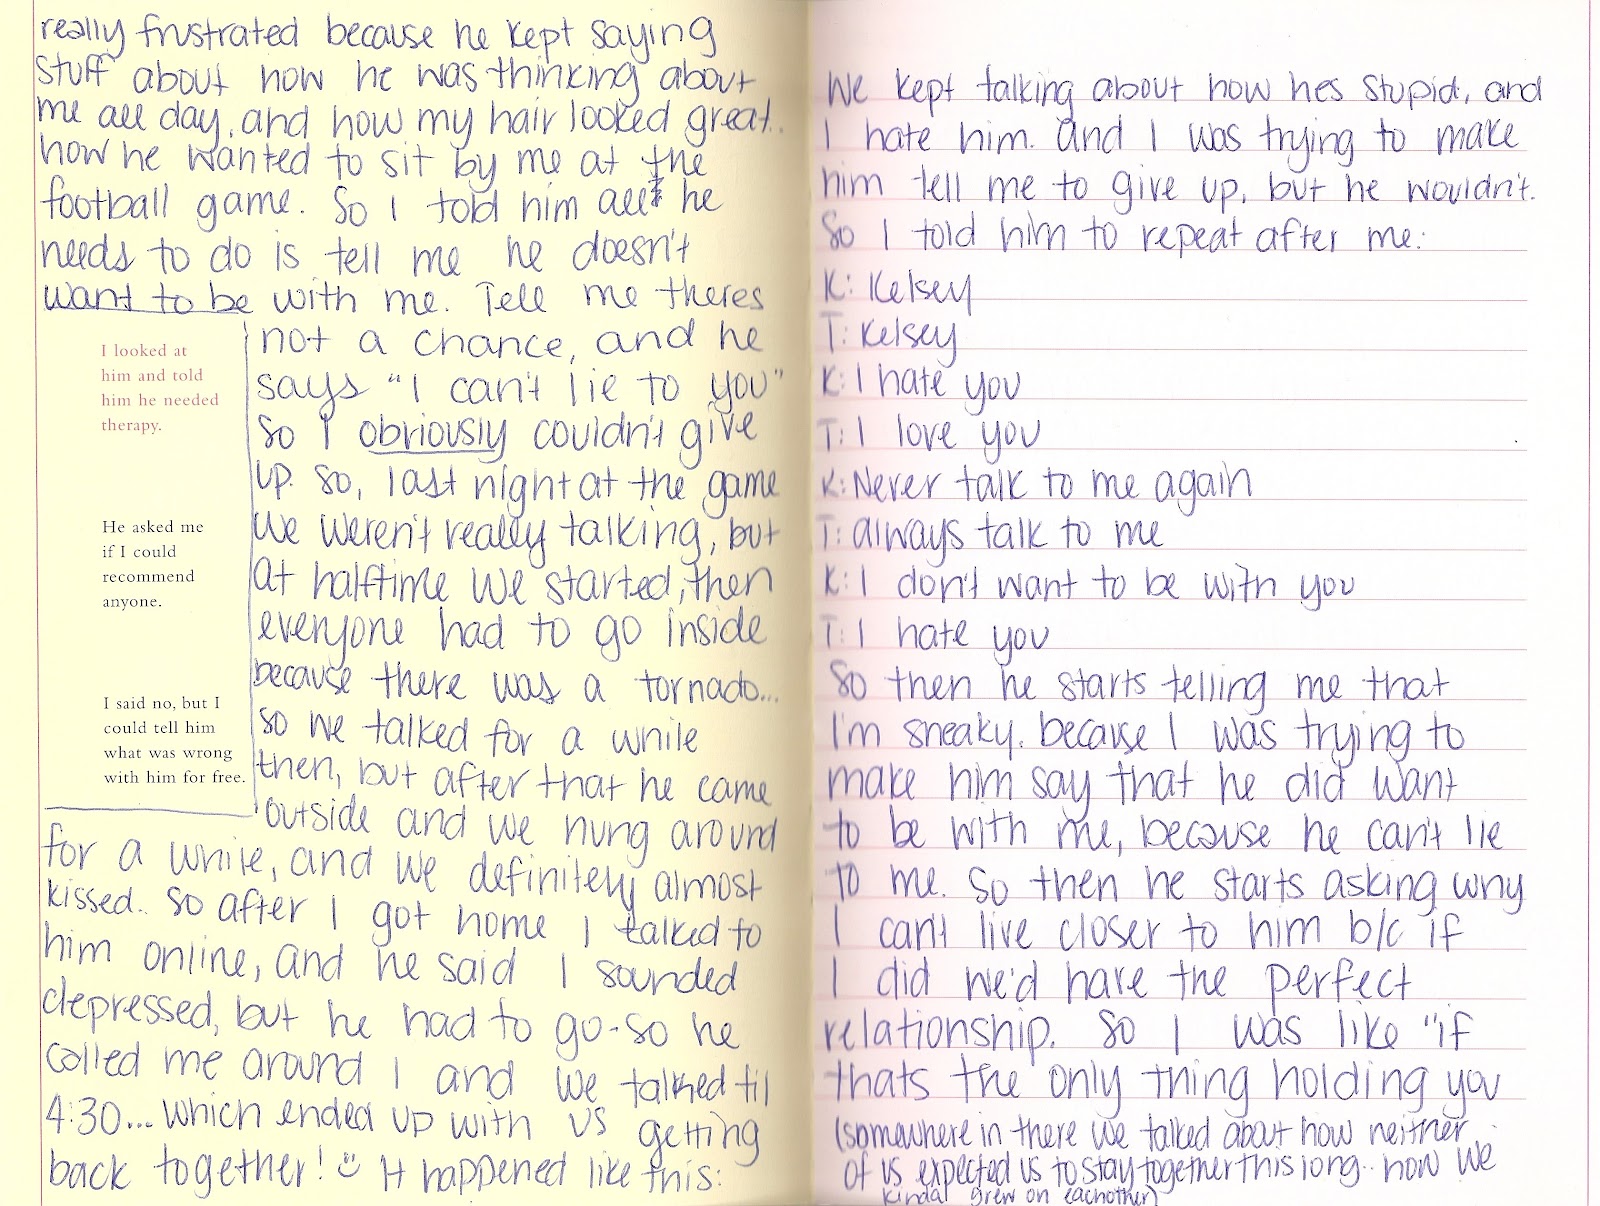 really frustrated because he kept saying
stuff about how he was thinking about
me all day, and how my hair looked great..
how he wanted to sit by me at the
football game. So I told him all he
needs to do is tell me he doesn't
want to be with me. Tell me theres
not a chance, and he
says "I can't lie to you"
So I obviously couldn't give
up. So, last night at the game
we weren't really talking, but
at halftime we started, then
everyone had to go inside
because there was a tornado...
so we talked for a while
then, but after that he came
outside and we hung around
for a while, and we definitely almost
kissed.. So after I got home I talked to
him online, and he said I sounded
depressed, but he had to go-so he
called me around 1 and we talked til
4:30... which ended up with us getting
back together! It happened like this:
I looked at
him and told
him he needed
therapy.
He asked me
if I could
recommend
anyone.
I said no, but I
could tell him
what was wrong
with him for free.
We kept talking about how hes stupid, and
I hate him. and I was trying to make
him tell me to give up, but he wouldn't.
So I told him to repeat after me:
K: Kelsey
T: Kelsey
K: I hate you
T: I love you
K: Never talk to me again
T: always talk to me
K: I don't want to be with you
T: I hate you
So then he starts telling me that
I'm sneaky. because I was trying to
make him say that he did want
to be with me, because he can't lie
to me. So then he starts asking why
I can't live closer to him b/c if
I did we'd have the perfect
relationship. So I was like "if
thats the only thing holding you
(somewhere in there we talked about how neither
of us expected us to stay together this long.. how we
kinda grew on eachother)